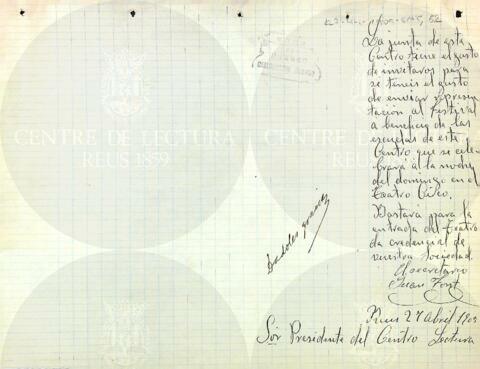 La junta de este
Centro tiene el gusto
de invitaros para
si teneis el gusto
de enviar represen
tación al Festival
a beneficio de las
escuelas de este
Centro que se cele
brará á la noche
del domingo en el
Teatro Circo.
Bastará para la
entrada del Teatro
la credencial de
vuestra Sociedad.
El secretario
Juan Font
Reus 27 Abril
Sor Presidente del Centro Lectura
CENTRE DE LECTURA
REUS 1859